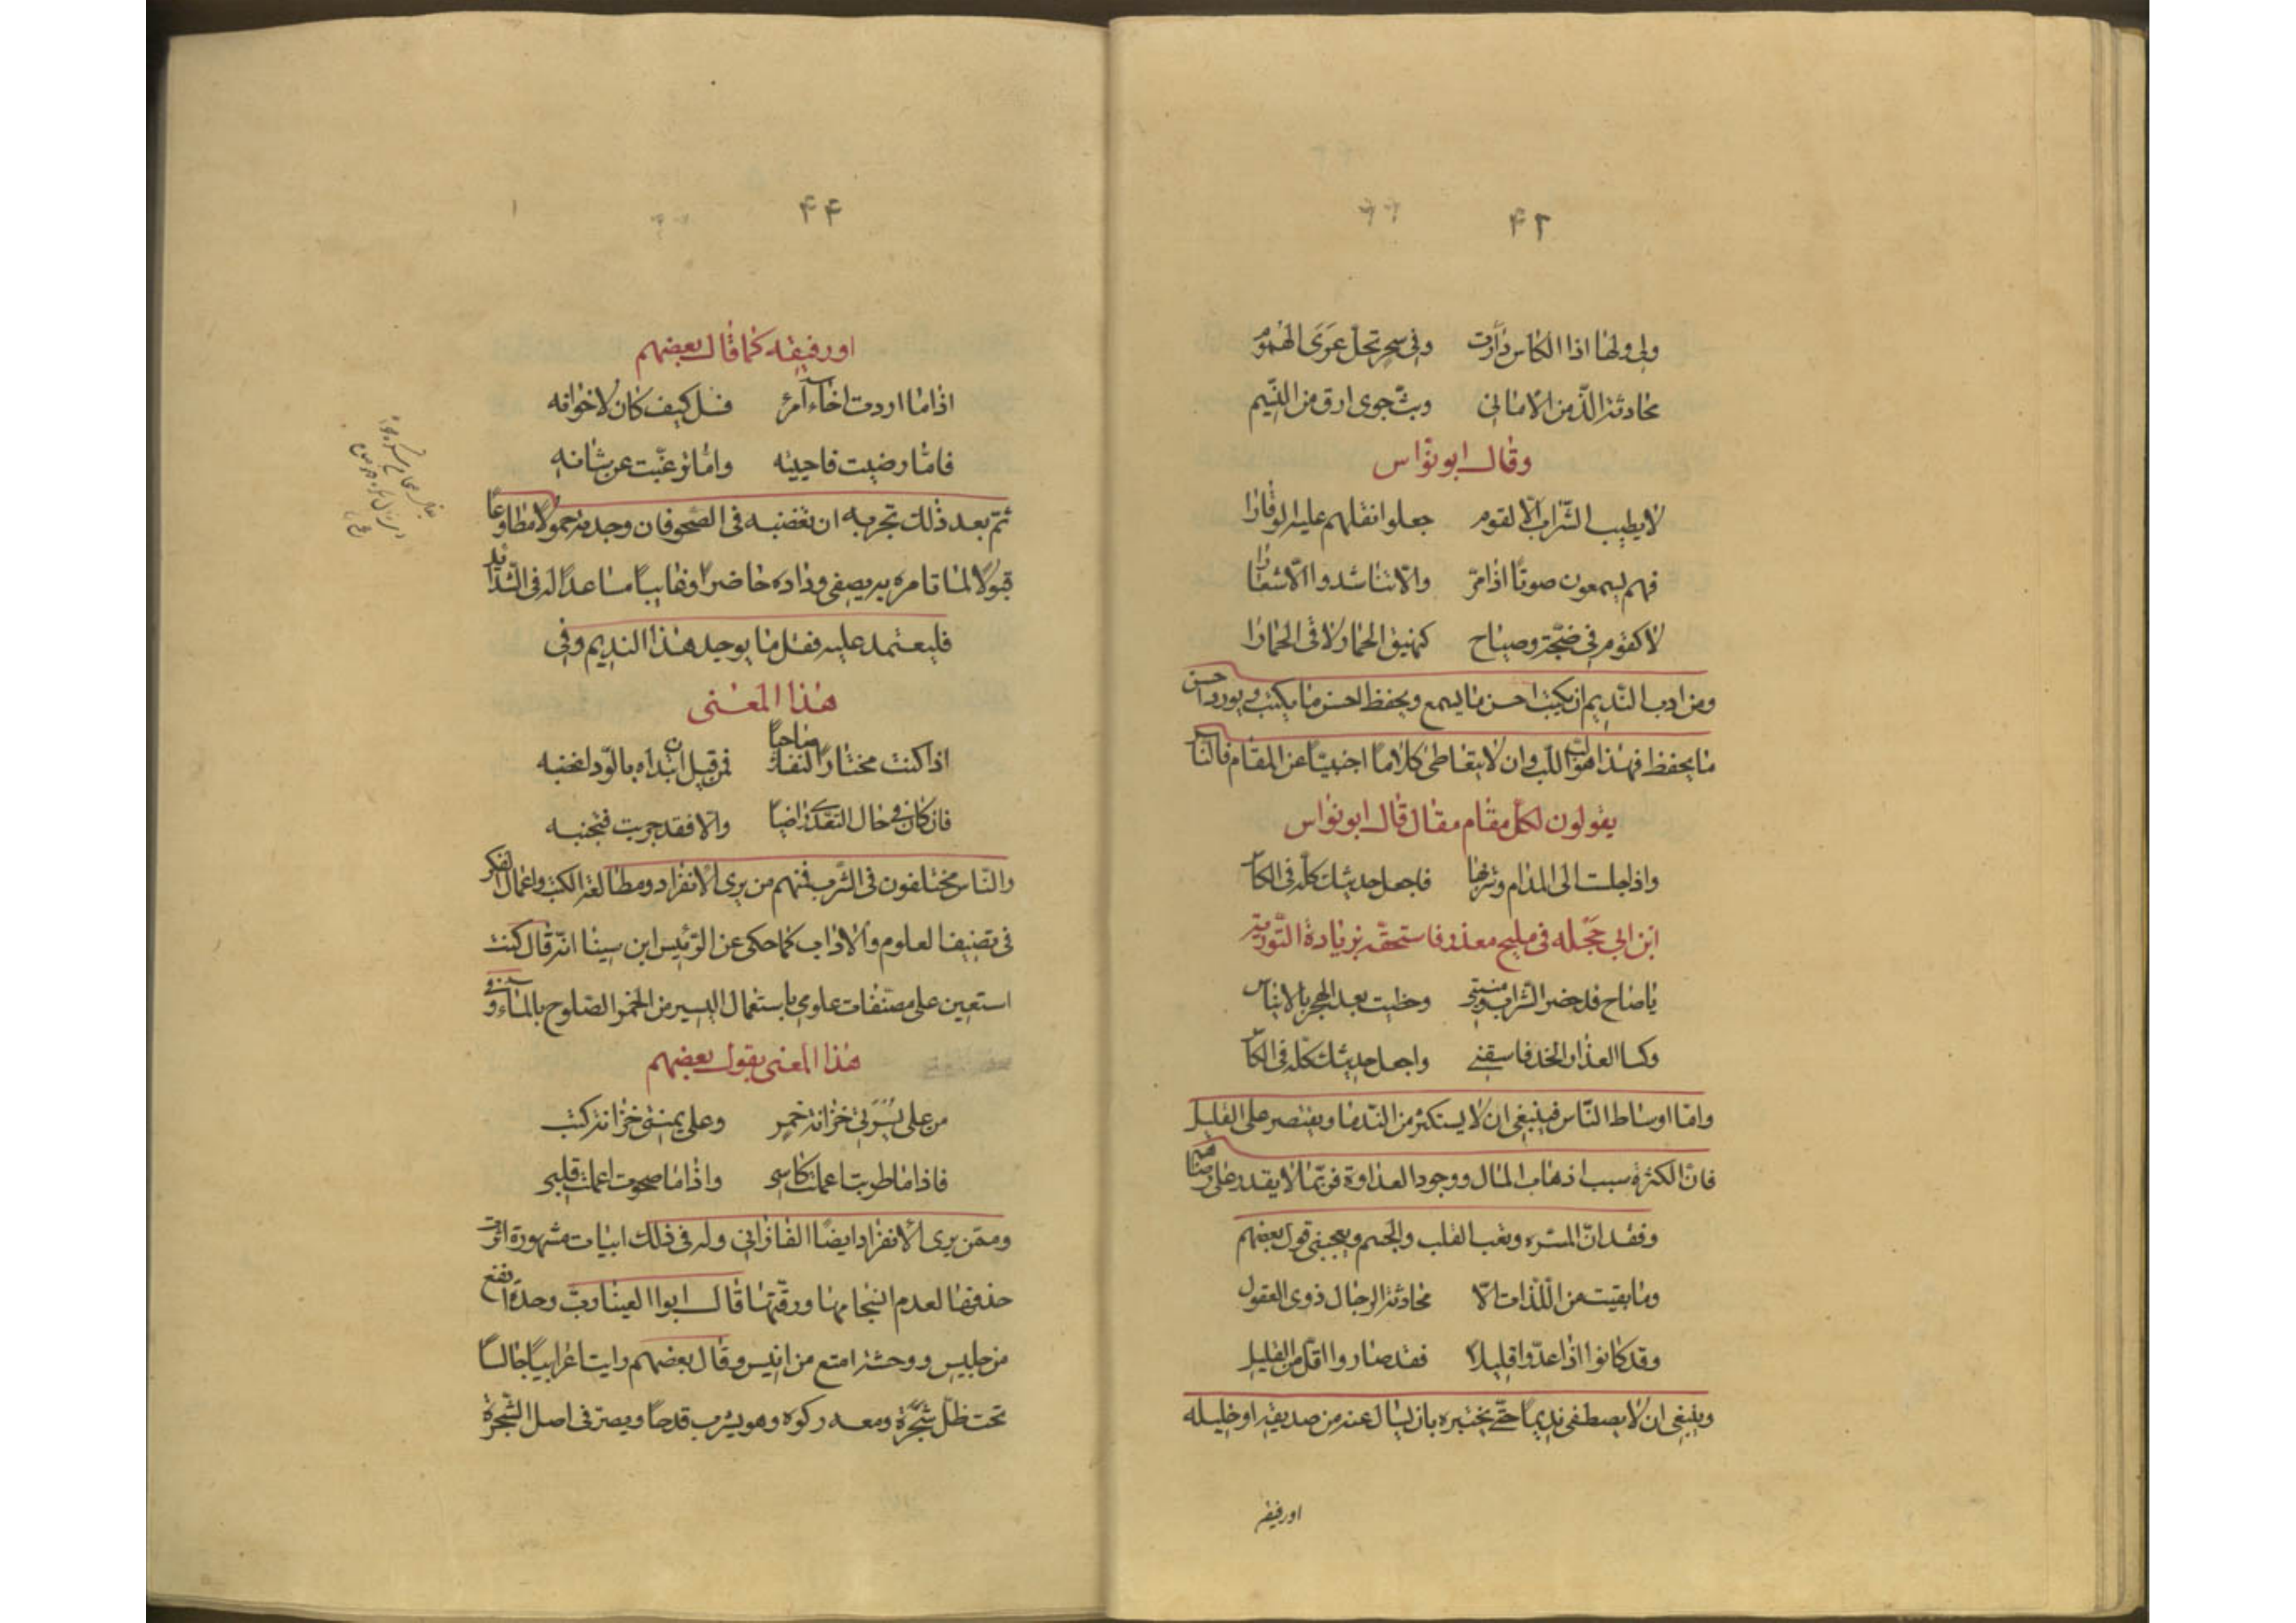 ۴۲
ولی ولها اذا الكاس دارت وفی سحر تحل عرى الهموم
محادثة الذ من الامانی وبث جوى ارق من النسيم
وقال ابو نواس
لا يطيب الشراب الا لقوم جعلوا نقلهم عليه الوقارا
فهم يسمعون صوتا اذا مر والا تناشدوا الاشعارا
لا كقوم فی ضجة وصياح كنهيق الحمار لاقى الحمارا
ومن ادب النديم ان يكتب احسن ما يسمع ويحفظ احسن ما يكتب ويورد احسن
ما يحفظ فهذا هو لب اللب وان لا يتعاطى كلاما اجنبيا عن المقام فالناس
يقولون لكل مقام مقال قال ابو نواس
واذا جلست الى المدام وشربها فاجعل حديثك كله فی الكاس
ابن ابی حجله فی مليح معذر فاستحقه بزيادة التورية
يا صاح قد حضر الشراب ومنيتی وحظيت بعد الهجر بالايناس
وكسا العذار الخد فاسقنی واجعل حديثك كله فی الكاس
واما اوساط الناس فينبغی ان لا يستكثر من الندما ويقتصر على القليل
فان الكثرة سبب اذهاب المال ووجود العداوة فربما لا يقدر على رضاهم
وفقد ان المسره وتعب القلب والجسم ويعجبنی قول بعضهم
وما بقيت من اللذات الا محادثة الرجال ذوى العقول
وقد كانوا اذا عدوا قليلا فقد صاروا اقل من القليل
وينبغی ان لا يصطفی نديما حتى يختبره بان يسال عنه من صديقه او خليله
اورفيقه
۴۴
اورفيقه كما قال بعضهم
اذا ما اردت اخاء امرئ فسل كيف كان لاخوانه
فاما رضيت فاحببته واما نوعبت عن شانه
ثم بعد ذلك تجربه ان تغضبه فی الصحو فان وجد منه حمولا مطاوعا
قبولا لما تامره به يصفی وداده حاضرا وغايبا مساعدا له فی الشدايد
فليعتمد عليه فقل ما يوجد هذا النديم وفی
هذا المعنى
اذا كنت مختارا لنفسك صاحبا فمن قبل ان تبداه بالود اغضبه
فان كان فی حال التقدی راضيا والا فقد جربت فتجنبه
والناس مختلفون فی الشرب فمنهم من يرى الانفراد ومطالعة الكتب واعمال الفكر
فی تصنيف العلوم والاداب كما حكی عن الرئيس ابن سينا انه قال كنت
استعين على مصنفات علومی باستعمال اليسير من الخمر الصلوح بالماء وفی
هذا المعنى يقول بعضهم
من على يسرتی خزانة خمر وعلى يمنتی خزانة كتب
فاذا ما طربت اعملت كاسی واذا ما صحوت اعملت قلبی
وممن يرى الانفراد ايضا الفارابی وله فی ذلك ابيات مشهورة اثرت
حذفها لعدم انسجامها ورقتها قال ابوا العينا رب وحدة انفع
من جليس ووحشة امتع من انيس وقال بعضهم رايت اعرابيا جالسا
تحت ظل شجرة ومعه ركوه وهو يشرب قدحا ويصب فی اصل الشجرة